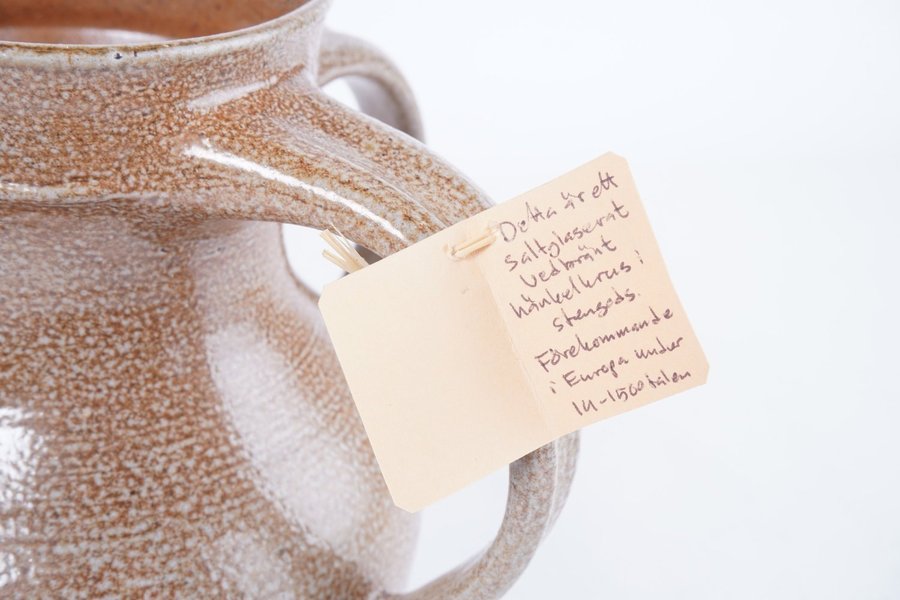 Detta är ett
saltglaserat
vedbränt
hänkelkrus i
stengods.
Förekommande
i Europa under
14-1500 talen